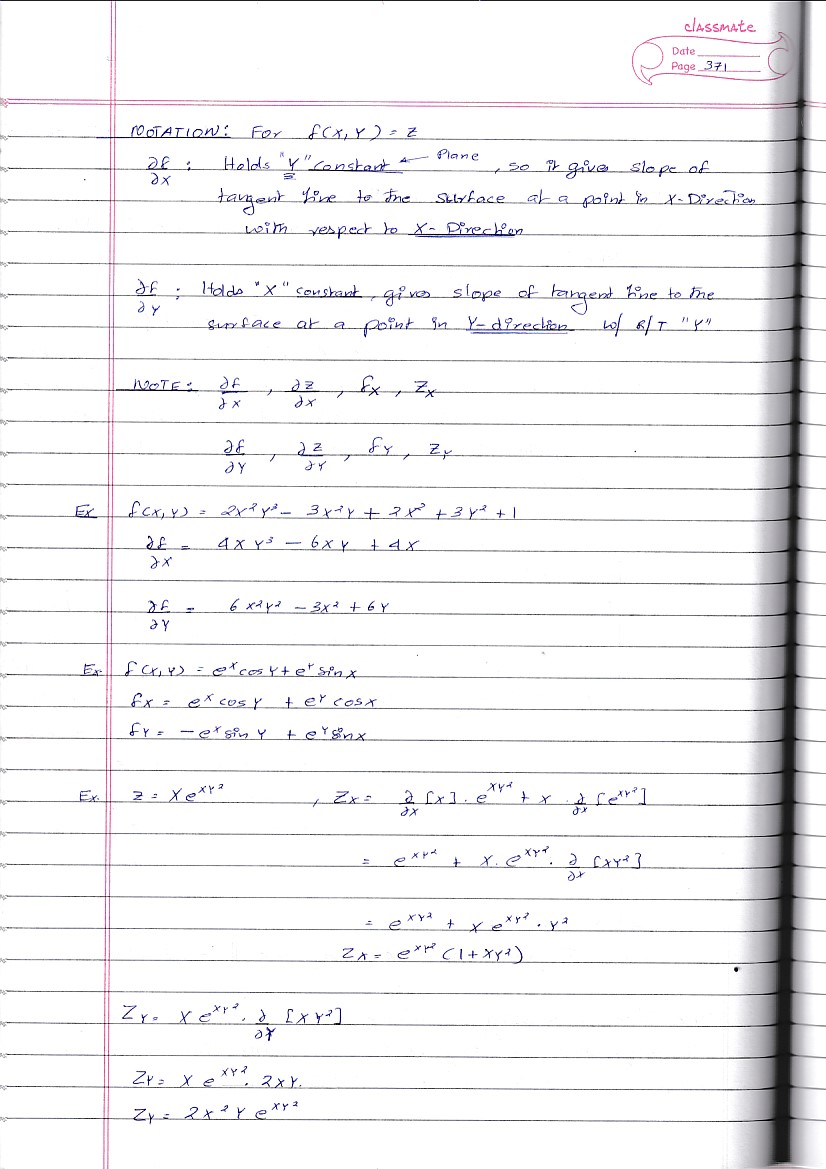 classmate
Date
Page 371
NOTATION: For f(x, y) = z
∂f/∂x : Holds "y" constant ← Plane, so it gives slope of
tangent line to the surface at a point in x-Direction
with respect to x-Direction
∂f/∂y : Holds "x" constant, gives slope of tangent line to the
surface at a point in y-direction w/ R/T "y"
NOTE: ∂f/∂x , ∂z/∂x , fx , zx
∂f/∂y , ∂z/∂y , fy , zy
Ex f(x, y) = 2x²y³ - 3x²y + 2x² + 3y² + 1
∂f/∂x = 4xy³ - 6xy + 4x
∂f/∂y = 6x²y² - 3x² + 6y
Ex. f(x, y) = eˣ cos y + eʸ sin x
fx = eˣ cos y + eʸ cos x
fy = -eˣ sin y + eʸ sin x
Ex. z = x e^(xy²) , zx = ∂/∂x [x] . e^(xy²) + x . ∂/∂x [e^(xy²)]
= e^(xy²) + x . e^(xy²) . ∂/∂x [xy²]
= e^(xy²) + x e^(xy²) . y²
zx = e^(xy²) (1 + xy²)
zy = x e^(xy²) . ∂/∂y [xy²]
zy = x e^(xy²) . 2xy.
zy = 2x²y e^(xy²)